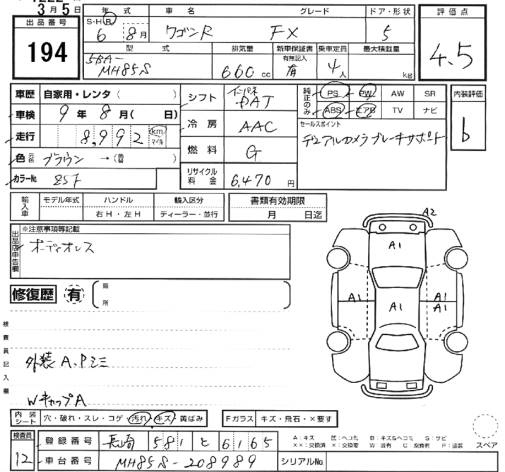 3月5日
出品番号 194
S・H・R 年式 車名 グレード ドア・形状 評価点
6年 8月 ワゴンR FX 5 4.5
型式 排気量 新車保証書 有無記入 乗車定員 最大積載量
5BA-MH85S 660cc 有 4人 kg
車歴 自家用・レンタ( )
車検 9年8月( 日)
走行 8,992 km マイル
色 元色 ブラウン →(替 )
カラーNo. ZSF
シフト インパネ DAT
冷房 AAC
燃料 G
リサイクル料金 6,470円
純正のみ PS PW AW SR
ABS エアB TV ナビ
セールスポイント
デュアルカメラブレーキサポート
内装評価 b
輸入車 モデル年式 ハンドル 輸入区分 書類有効期限
年 右H・左H ディーラー・並行 月 日迄
出品店申告欄 ※注意事項等記載
オーディオレス
修復歴 有 箇所
検査員記入欄
外装A、Pミニ
WキャップA
A2
A1
A1
A1
A1
A1
内装シート 穴・破れ・スレ・コゲ・汚れ・キズ・黄ばみ Fガラス キズ・飛石・×要す
スペア
検査員 12
登録番号 長崎 581 と 6165
車台番号 MH85S-208989 シリアルNo.